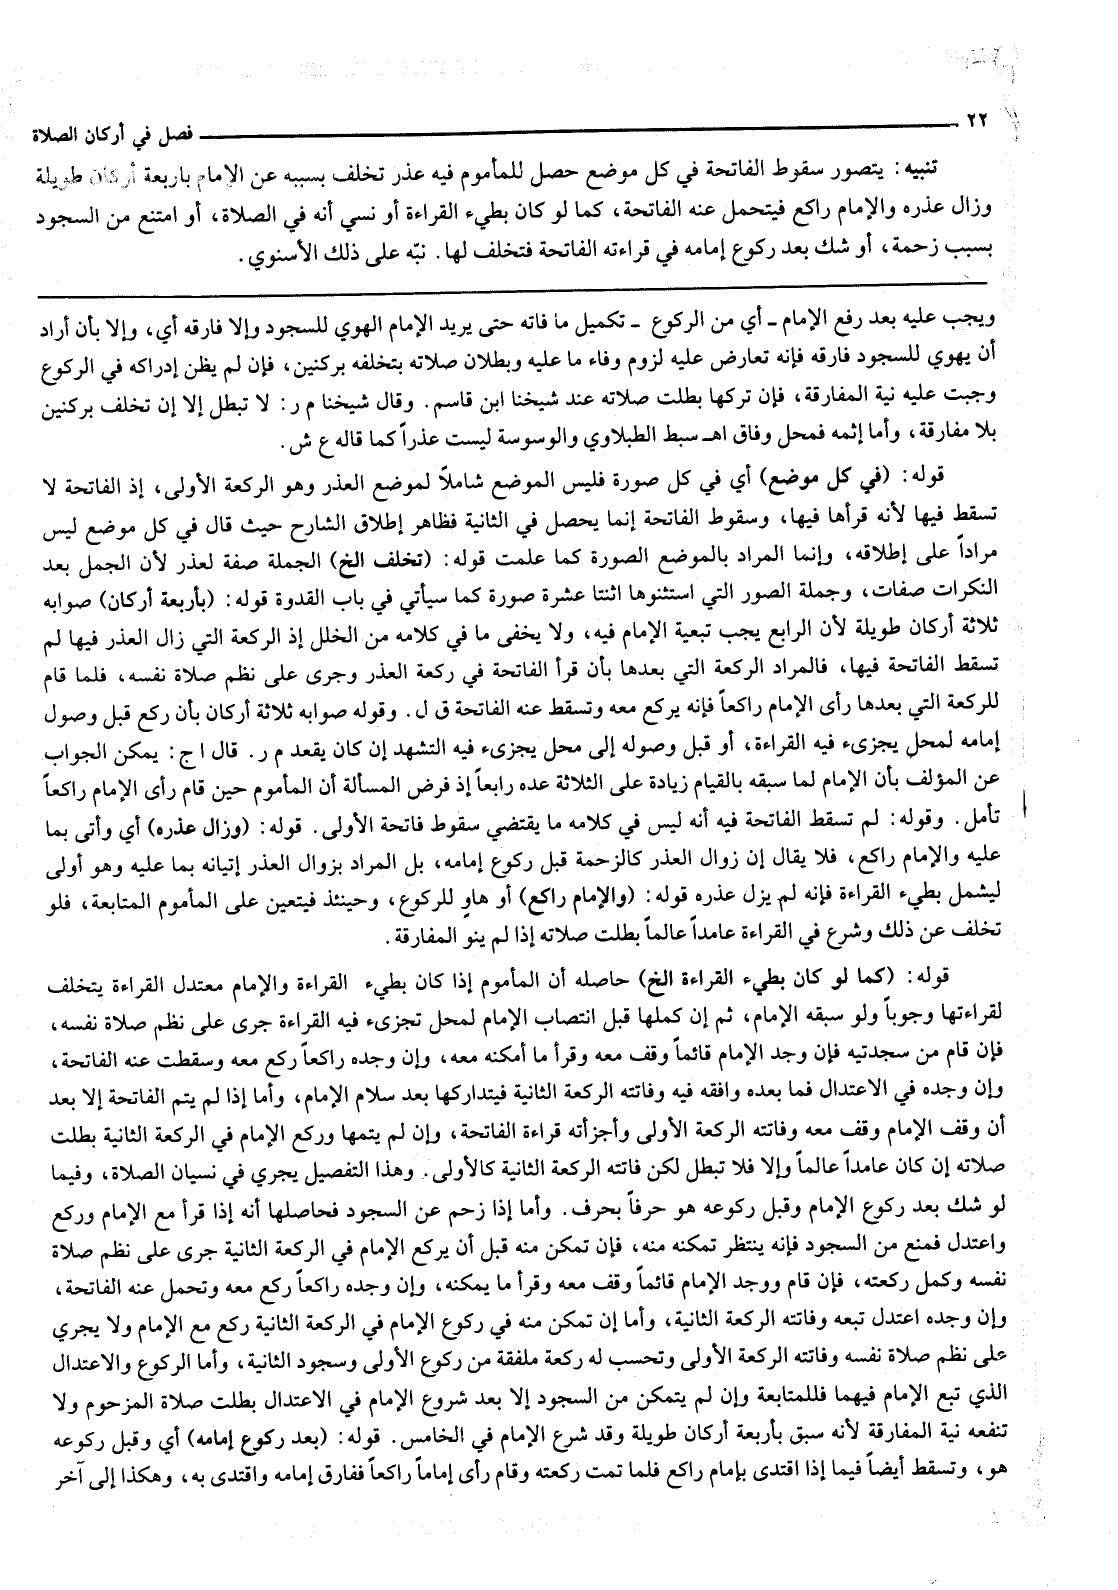 ٢٢ فصل في أركان الصلاة
تنبيه: يتصور سقوط الفاتحة في كل موضع حصل للمأموم فيه عذر تخلف بسببه عن الإمام باربعة أركان طويلة
وزال عذره والإمام راكع فيتحمل عنه الفاتحة، كما لو كان بطيء القراءة أو نسي أنه في الصلاة، أو امتنع من السجود
بسبب زحمة، أو شك بعد ركوع إمامه في قراءته الفاتحة فتخلف لها. نبّه على ذلك الأسنوي.
ويجب عليه بعد رفع الإمام ـ أي من الركوع ـ تكميل ما فاته حتى يريد الإمام الهوي للسجود وإلا فارقه أي، وإلا بأن أراد
أن يهوي للسجود فارقه فإنه تعارض عليه لزوم وفاء ما عليه وبطلان صلاته بتخلفه بركنين، فإن لم يظن إدراكه في الركوع
وجبت عليه نية المفارقة، فإن تركها بطلت صلاته عند شيخنا ابن قاسم. وقال شيخنا م ر: لا تبطل إلا إن تخلف بركنين
بلا مفارقة، وأما إثمه فمحل وفاق اهـ سبط الطبلاوي والوسوسة ليست عذراً كما قاله ع ش.
قوله: (في كل موضع) أي في كل صورة فليس الموضع شاملاً لموضع العذر وهو الركعة الأولى، إذ الفاتحة لا
تسقط فيها لأنه قرأها فيها، وسقوط الفاتحة إنما يحصل في الثانية فظاهر إطلاق الشارح حيث قال في كل موضع ليس
مراداً على إطلاقه، وإنما المراد بالموضع الصورة كما علمت قوله: (تخلف الخ) الجملة صفة لعذر لأن الجمل بعد
النكرات صفات، وجملة الصور التي استثنوها اثنتا عشرة صورة كما سيأتي في باب القدوة قوله: (بأربعة أركان) صوابه
ثلاثة أركان طويلة لأن الرابع يجب تبعية الإمام فيه، ولا يخفى ما في كلامه من الخلل إذ الركعة التي زال العذر فيها لم
تسقط الفاتحة فيها، فالمراد الركعة التي بعدها بأن قرأ الفاتحة في ركعة العذر وجرى على نظم صلاة نفسه، فلما قام
للركعة التي بعدها رأى الإمام راكعاً فإنه يركع معه وتسقط عنه الفاتحة ق ل. وقوله صوابه ثلاثة أركان بأن ركع قبل وصول
إمامه لمحل يجزىء فيه القراءة، أو قبل وصوله إلى محل يجزىء فيه التشهد إن كان يقعد م ر. قال ا ج: يمكن الجواب
عن المؤلف بأن الإمام لما سبقه بالقيام زيادة على الثلاثة عده رابعاً إذ فرض المسألة أن المأموم حين قام رأى الإمام راكعاً
تأمل. وقوله: لم تسقط الفاتحة فيه أنه ليس في كلامه ما يقتضي سقوط فاتحة الأولى. قوله: (وزال عذره) أي وأتى بما
عليه والإمام راكع، فلا يقال إن زوال العذر كالزحمة قبل ركوع إمامه، بل المراد بزوال العذر إتيانه بما عليه وهو أولى
ليشمل بطيء القراءة فإنه لم يزل عذره قوله: (والإمام راكع) أو هاوٍ للركوع، وحينئذ فيتعين على المأموم المتابعة، فلو
تخلف عن ذلك وشرع في القراءة عامداً عالماً بطلت صلاته إذا لم ينو المفارقة.
قوله: (كما لو كان بطيء القراءة الخ) حاصله أن المأموم إذا كان بطيء القراءة والإمام معتدل القراءة يتخلف
لقراءتها وجوباً ولو سبقه الإمام، ثم إن كملها قبل انتصاب الإمام لمحل تجزىء فيه القراءة جرى على نظم صلاة نفسه،
فإن قام من سجدتيه فإن وجد الإمام قائماً وقف معه وقرأ ما أمكنه معه، وإن وجده راكعاً ركع معه وسقطت عنه الفاتحة،
وإن وجده في الاعتدال فما بعده وافقه فيه وفاتته الركعة الثانية فيتداركها بعد سلام الإمام، وأما إذا لم يتم الفاتحة إلا بعد
أن وقف الإمام وقف معه وفاتته الركعة الأولى وأجزأته قراءة الفاتحة، وإن لم يتمها وركع الإمام في الركعة الثانية بطلت
صلاته إن كان عامداً عالماً وإلا فلا تبطل لكن فاتته الركعة الثانية كالأولى. وهذا التفصيل يجري في نسيان الصلاة، وفيما
لو شك بعد ركوع الإمام وقبل ركوعه هو حرفاً بحرف. وأما إذا زحم عن السجود فحاصلها أنه إذا قرأ مع الإمام وركع
واعتدل فمنع من السجود فإنه ينتظر تمكنه منه، فإن تمكن منه قبل أن يركع الإمام في الركعة الثانية جرى على نظم صلاة
نفسه وكمل ركعته، فإن قام ووجد الإمام قائماً وقف معه وقرأ ما يمكنه، وإن وجده راكعاً ركع معه وتحمل عنه الفاتحة،
وإن وجده اعتدل تبعه وفاتته الركعة الثانية، وأما إن تمكن منه في ركوع الإمام في الركعة الثانية ركع مع الإمام ولا يجري
على نظم صلاة نفسه وفاتته الركعة الأولى وتحسب له ركعة ملفقة من ركوع الأولى وسجود الثانية، وأما الركوع والاعتدال
الذي تبع الإمام فيهما فللمتابعة وإن لم يتمكن من السجود إلا بعد شروع الإمام في الاعتدال بطلت صلاة المزحوم ولا
تنفعه نية المفارقة لأنه سبق بأربعة أركان طويلة وقد شرع الإمام في الخامس. قوله: (بعد ركوع إمامه) أي وقبل ركوعه
هو، وتسقط أيضاً فيما إذا اقتدى بإمام راكع فلما تمت ركعته وقام رأى إماماً راكعاً ففارق إمامه واقتدى به، وهكذا إلى آخر